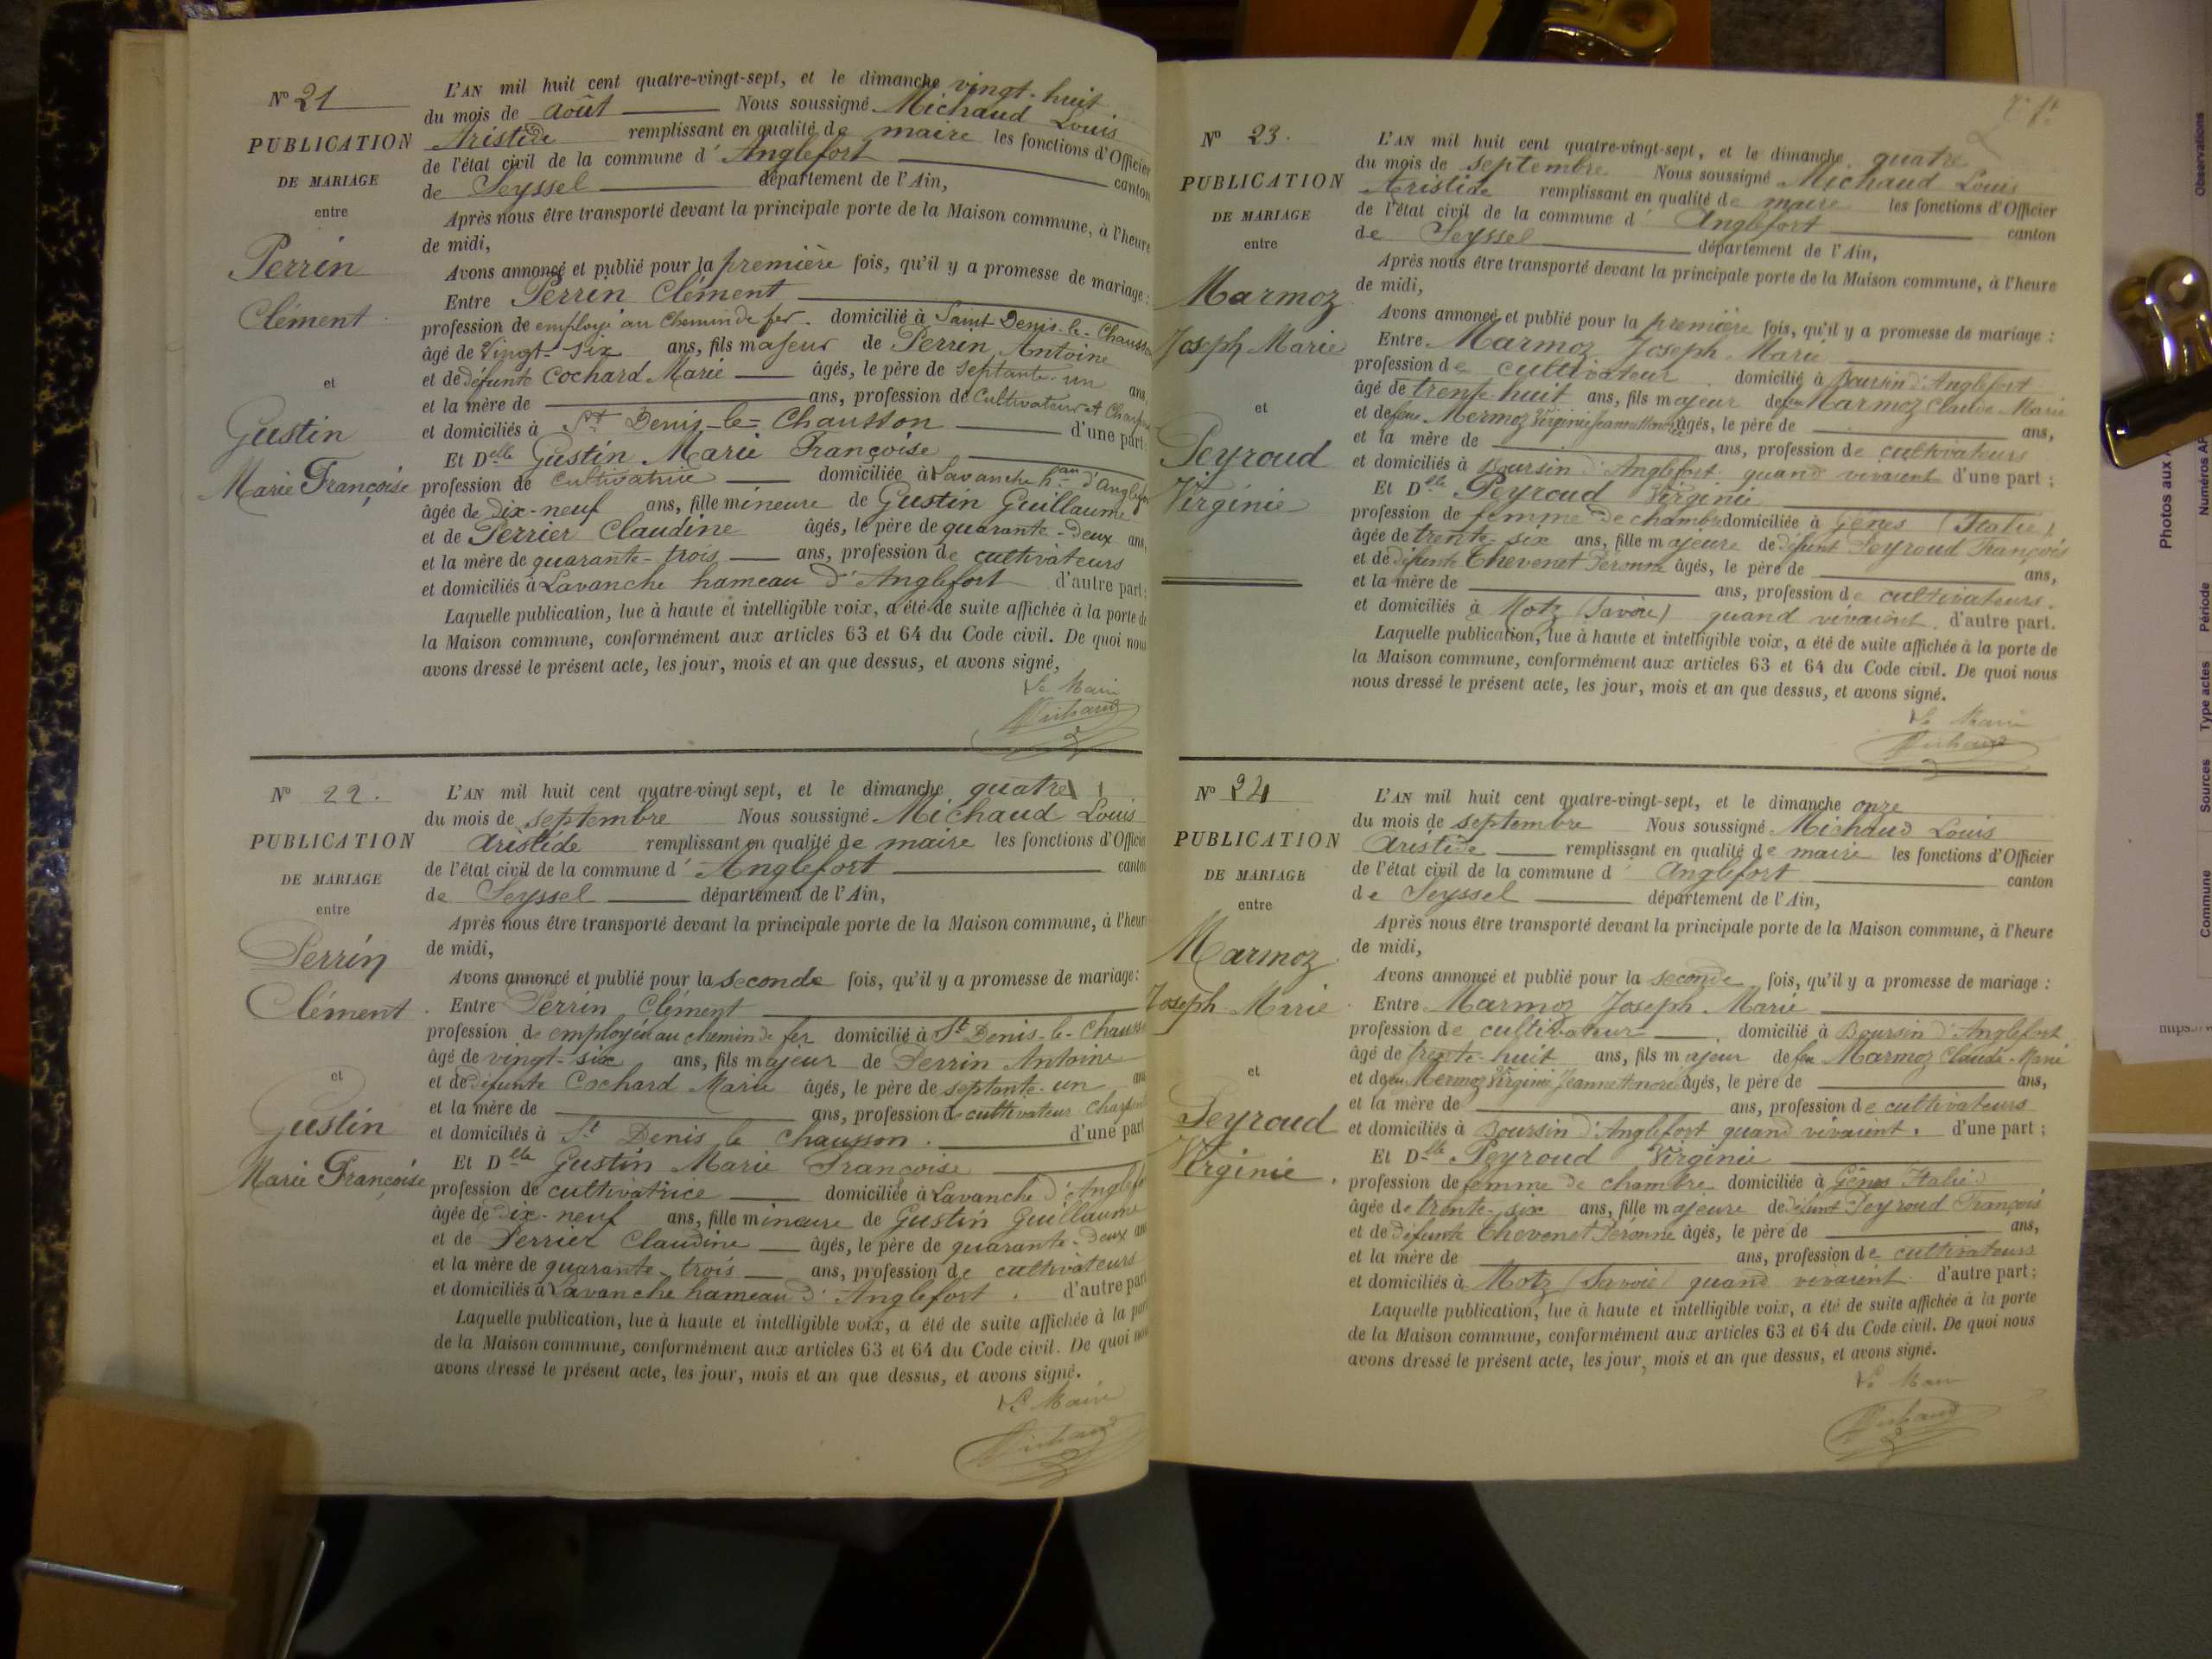 N° 21
PUBLICATION
DE MARIAGE
entre
Perrin
Clément
et
Gustin
Marie Françoise
L'AN mil huit cent quatre-vingt-sept, et le dimanche vingt-huit
du mois de août Nous soussigné Michaud Louis
Aristide remplissant en qualité de maire les fonctions d'Officier
de l'état civil de la commune d' Anglefort canton
de Seyssel département de l'Ain,
Après nous être transporté devant la principale porte de la Maison commune, à l'heure
de midi,
Avons annoncé et publié pour la première fois, qu'il y a promesse de mariage :
Entre Perrin Clément
profession de employé au chemin de fer. domicilié à Saint Denis-le-Chausson
âgé de Vingt-six ans, fils majeur de Perrin Antoine
et de défunte Cochard Marie âgés, le père de septante-un ans,
et la mère de ans, profession de Cultivateur et
et domiciliés à St Denis-le-Chausson d'une part
Et Delle Gustin Marie Françoise
profession de Cultivatrice domiciliée à Lavanche hau d'Anglefort
âgée de Dix-neuf ans, fille mineure de Gustin Guillaume
et de Perrier Claudine âgés, le père de quarante-deux ans,
et la mère de quarante-trois ans, profession de cultivateurs
et domiciliés à Lavanche hameau d'Anglefort d'autre part;
Laquelle publication, lue à haute et intelligible voix, a été de suite affichée à la porte de
la Maison commune, conformément aux articles 63 et 64 du Code civil. De quoi nous
avons dressé le présent acte, les jour, mois et an que dessus, et avons signé,
Le Maire
Michaud
N° 22.
PUBLICATION
DE MARIAGE
entre
Perrin
Clément
et
Gustin
Marie Françoise
L'AN mil huit cent quatre-vingt sept, et le dimanche quatre
du mois de septembre Nous soussigné Michaud Louis
Aristide remplissant en qualité de maire les fonctions d'Officier
de l'état civil de la commune d' Anglefort canton
de Seyssel département de l'Ain,
Après nous être transporté devant la principale porte de la Maison commune, à l'heure
de midi,
Avons annoncé et publié pour la seconde fois, qu'il y a promesse de mariage:
Entre Perrin Clément
profession de employé au chemin de fer domicilié à St Denis-le-Chausson
âgé de vingt-six ans, fils majeur de Perrin Antoine
et de défunte Cochard Marie âgés, le père de septante-un ans
et la mère de ans, profession de cultivateur
et domiciliés à St Denis le Chausson. d'une part
Et Delle Gustin Marie Françoise
profession de cultivatrice domiciliée à Lavanche d'Anglefort
âgée de dix-neuf ans, fille mineure de Gustin Guillaume
et de Perrier Claudine âgés, le père de quarante-deux ans
et la mère de quarante-trois ans, profession de cultivateurs
et domiciliés à Lavanche hameau d'Anglefort. d'autre part
Laquelle publication, lue à haute et intelligible voix, a été de suite affichée à la porte
de la Maison commune, conformément aux articles 63 et 64 du Code civil. De quoi nous
avons dressé le présent acte, les jour, mois et an que dessus, et avons signé.
Le Maire
Michaud
N° 23.
PUBLICATION
DE MARIAGE
entre
Marmoz
Joseph Marie
et
Peyroud
Virginie
L'AN mil huit cent quatre-vingt-sept, et le dimanche quatre
du mois de septembre Nous soussigné Michaud Louis
Aristide remplissant en qualité de maire les fonctions d'Officier
de l'état civil de la commune d' Anglefort canton
de Seyssel département de l'Ain,
Après nous être transporté devant la principale porte de la Maison commune, à l'heure
de midi,
Avons annoncé et publié pour la première fois, qu'il y a promesse de mariage :
Entre Marmoz Joseph Marie
profession de cultivateur domicilié à Boursin d'Anglefort
âgé de trente-huit ans, fils majeur de feu Marmoz Claude-Marie
et de feue Mermoz Virginie âgés, le père de ans,
et la mère de ans, profession de cultivateurs
et domiciliés à Boursin d'Anglefort quand vivaient d'une part ;
Et Delle Peyroud Virginie
profession de femme de chambre domiciliée à Gênes (Italie)
âgée de trente-six ans, fille majeure de défunt Peyroud François
et de défunte Chevenet Péronne âgés, le père de ans,
et la mère de ans, profession de cultivateurs.
et domiciliés à Motz (Savoie) quand vivaient. d'autre part.
Laquelle publication, lue à haute et intelligible voix, a été de suite affichée à la porte de
la Maison commune, conformément aux articles 63 et 64 du Code civil. De quoi nous
nous dressé le présent acte, les jour, mois et an que dessus, et avons signé.
Le Maire
Michaud
N° 24
PUBLICATION
DE MARIAGE
entre
Marmoz
Joseph Marie
et
Peyroud
Virginie.
L'AN mil huit cent quatre-vingt-sept, et le dimanche onze
du mois de septembre Nous soussigné Michaud Louis
Aristide remplissant en qualité de maire les fonctions d'Officier
de l'état civil de la commune d' Anglefort canton
de Seyssel département de l'Ain,
Après nous être transporté devant la principale porte de la Maison commune, à l'heure
de midi,
Avons annoncé et publié pour la seconde fois, qu'il y a promesse de mariage :
Entre Marmoz Joseph Marie
profession de cultivateur domicilié à Boursin d'Anglefort
âgé de trente-huit ans, fils majeur de feu Marmoz Claude-Marie
et de feu Mermoz Virginie âgés, le père de ans,
et la mère de ans, profession de cultivateurs
et domiciliés à Boursin d'Anglefort quand vivaient. d'une part ;
Et Delle Peyroud Virginie
profession de femme de chambre domiciliée à Gênes Italie
âgée de trente-six ans, fille majeure de défunt Peyroud François
et de défunte Chevenet Péronne âgés, le père de ans,
et la mère de ans, profession de cultivateurs
et domiciliés à Motz (Savoie) quand vivaient d'autre part;
Laquelle publication, lue à haute et intelligible voix, a été de suite affichée à la porte
de la Maison commune, conformément aux articles 63 et 64 du Code civil. De quoi nous
avons dressé le présent acte, les jour, mois et an que dessus, et avons signé.
Le Maire
Michaud
Commune
Sources
Type actes
Période
Numéros
Observations
Photos aux